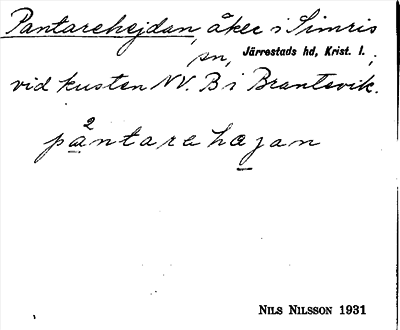 Pantarehejdan, åker i Simris
sn, Järrestads hd, Krist. l.,
vid kusten NV. B i Brantevik.
2
pantarehæjan
NILS NILSSON 1931